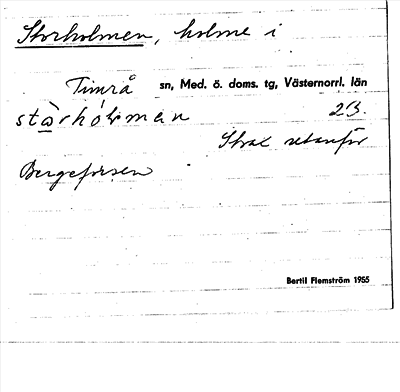 Storholmen, holme i
Timrå sn, Med. ö. doms. tg, Västernorrl. län
2B.
Strax utanför
Bergeforsen
Bertil Flemström 1955